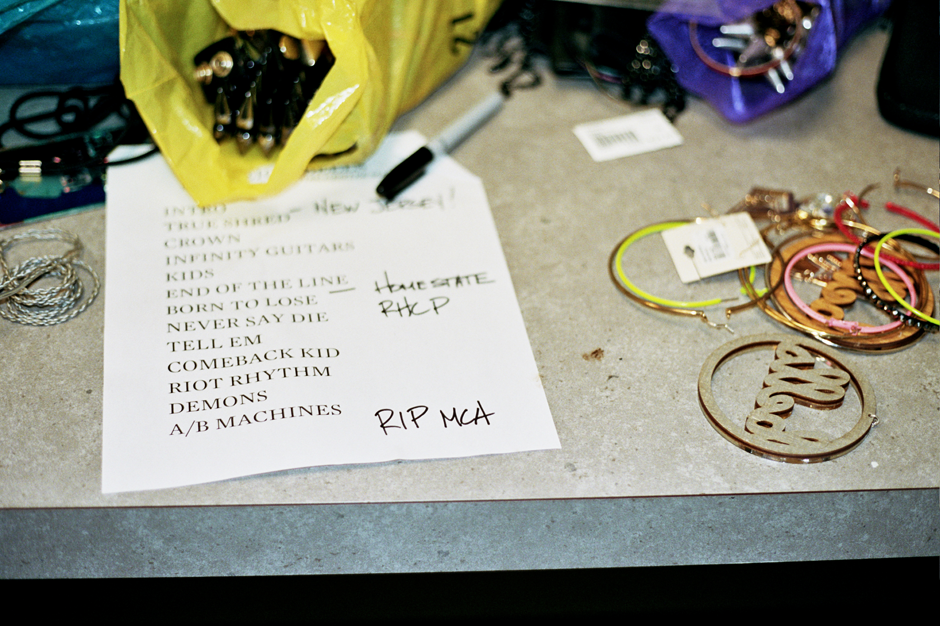 INTRO
TRUE SHRED – NEW JERSEY!
CROWN
INFINITY GUITARS
KIDS
END OF THE LINE — HOMESTATE
BORN TO LOSE RHCP
NEVER SAY DIE
TELL EM
COMEBACK KID
RIOT RHYTHM
DEMONS
A/B MACHINES RIP MCA